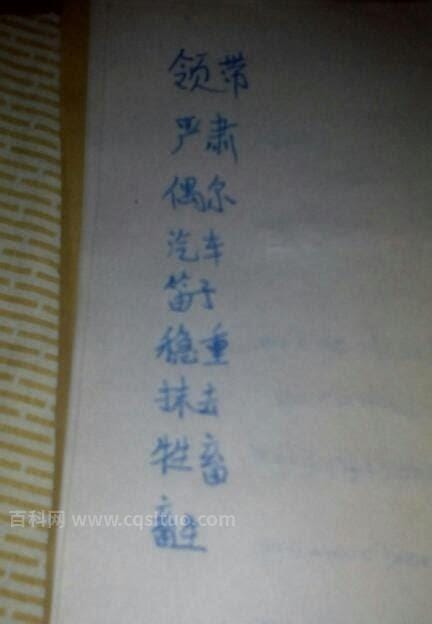 领带
严肃
偶尔
汽车
笛子
稳重
抹去
牲畜
百科网 www.cqsltuo.com